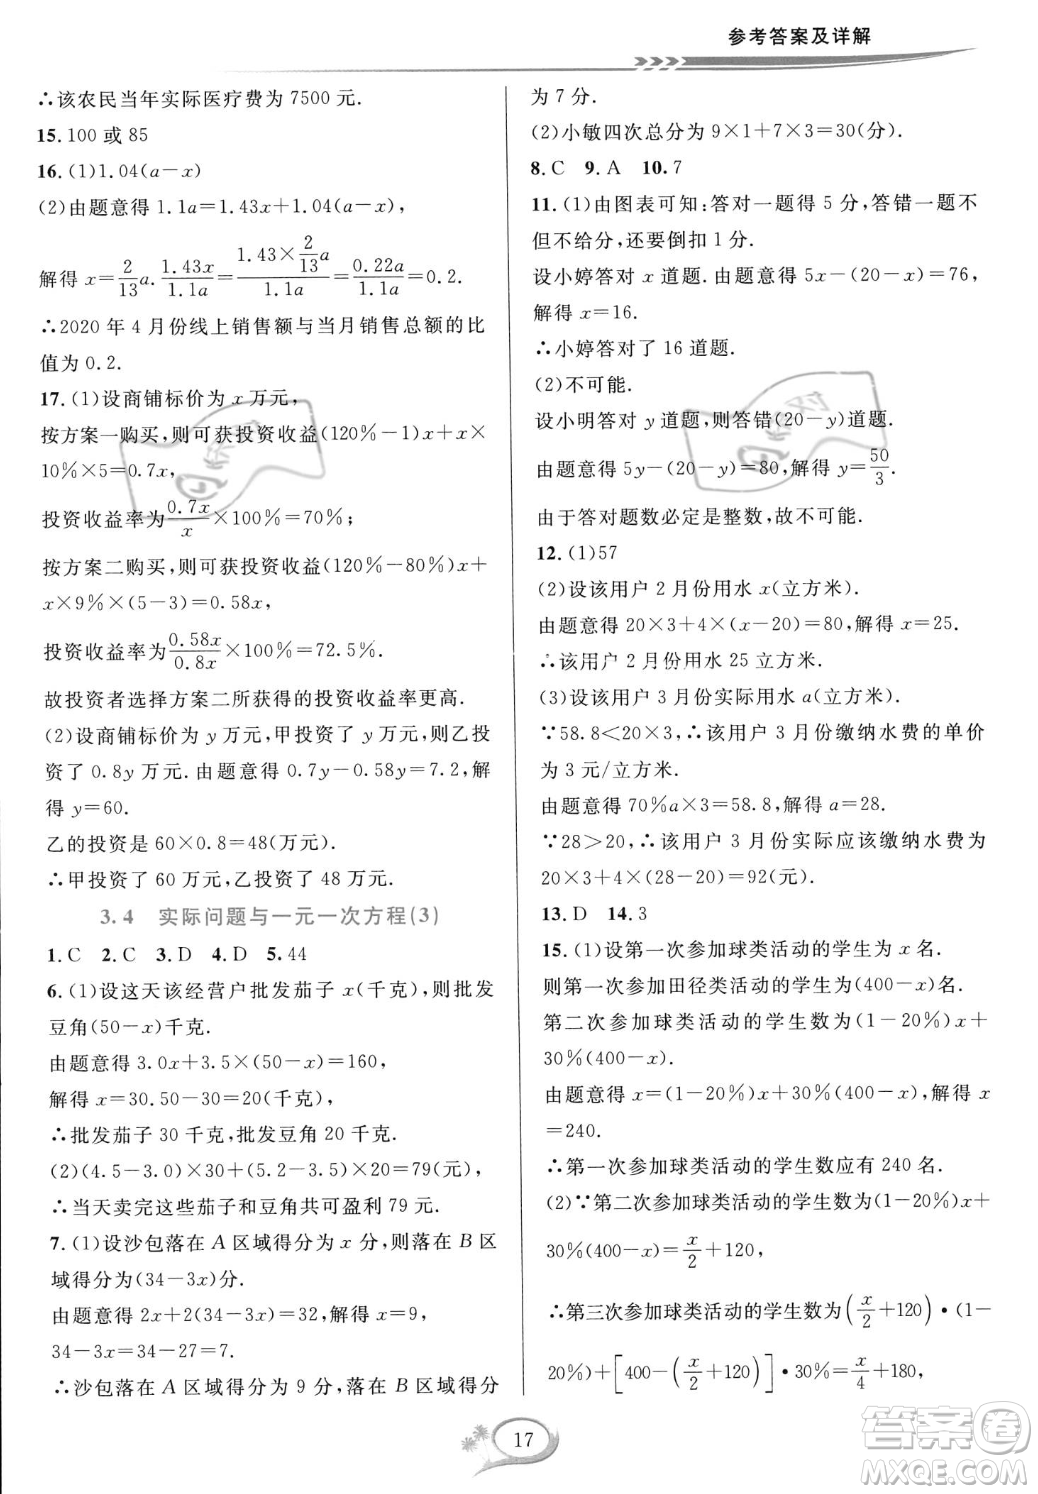 参考答案及详解
∴该农民当年实际医疗费为 7500 元.
15. 100 或 85
16. (1)1.04(a－x)
(2)由题意得 1.1a＝1.43x＋1.04(a－x),
解得 x＝2/13 a. 1.43x/1.1a＝(1.43×2/13 a)/1.1a＝0.22a/1.1a＝0.2.
∴2020 年 4 月份线上销售额与当月销售总额的比
值为 0.2.
17. (1)设商铺标价为 x 万元,
按方案一购买,则可获投资收益(120%－1)x＋x×
10%×5＝0.7x,
投资收益率为 0.7x/x×100%＝70%;
按方案二购买,则可获投资收益(120%－80%)x＋
x×9%×(5－3)＝0.58x,
投资收益率为 0.58x/0.8x×100%＝72.5%.
故投资者选择方案二所获得的投资收益率更高.
(2)设商铺标价为 y 万元,甲投资了 y 万元,则乙投
资了 0.8y 万元.由题意得 0.7y－0.58y＝7.2,解
得 y＝60.
乙的投资为 60×0.8＝48(万元).
∴甲投资了 60 万元,乙投资了 48 万元.
3.4 实际问题与一元一次方程(3)
1. C 2. C 3. D 4. D 5. 44
6. (1)设这天该经营户批发茄子 x(千克),则批发
豆角(50－x)千克.
由题意得 3.0x＋3.5×(50－x)＝160,
解得 x＝30.50－30＝20(千克),
∴批发茄子 30 千克,批发豆角 20 千克.
(2)(4.5－3.0)×30＋(5－3.5)×20＝79(元),
∴当天卖完这些茄子和豆角共可盈利 79 元.
7. (1)设沙包落在 A 区域得分为 x 分,则落在 B 区
域得分为(34－3x)分.
由题意得 2x＋2(34－3x)＝32,解得 x＝9,
34－3x＝34－27＝7.
∴沙包落在 A 区域得分为 9 分,落在 B 区域得分
为 7 分.
(2)小敏四次总分为 9×1＋7×3＝30(分).
8. C 9. A 10. 7
11. (1)由图表可知:答对一题得 5 分,答错一题不
但不给分,还要倒扣 1 分.
设小婷答对 x 道题.由题意得 5x－(20－x)＝76,
解得 x＝16.
∴小婷答对了 16 道题.
(2)不可能.
设小明答对 y 道题,则答错(20－y)道题.
由题意得 5y－(20－y)＝80,解得 y＝50/3.
由于答对题数必定是整数,故不可能.
12. (1)57
(2)设该用户 2 月份用水 x(立方米).
由题意得 20×3＋4×(x－20)＝80,解得 x＝25.
∴该用户 2 月份用水 25 立方米.
(3)设该用户 3 月份实际用水 a(立方米).
∵58.8＜20×3,∴该用户 3 月份缴纳水费的单价
为 3 元/立方米.
由题意得 70%a×3＝58.8,解得 a＝28.
∵28＞20,∴该用户 3 月份实际应该缴纳水费为
20×3＋4×(28－20)＝92(元).
13. D 14. 3
15. (1)设第一次参加球类活动的学生为 x 名.
则第一次参加田径类活动的学生为(400－x)名.
第二次参加球类活动的学生数为(1－20%)x＋
30%(400－x).
由题意得 x＝(1－20%)x＋30%(400－x),解得 x
＝240.
∴第一次参加球类活动的学生数应有 240 名.
(2)∵第二次参加球类活动的学生数为(1－20%)x＋
30%(400－x)＝x/2＋120,
∴第三次参加球类活动的学生数为(x/2＋120)•(1－
20%)＋[400－(x/2＋120)]•30%＝x/4＋180,
17
答案卷
MXQE.COM